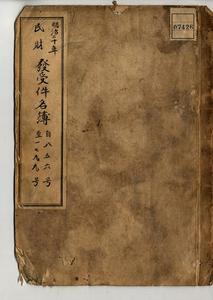 明治十年
民財 發受件名簿
自八五六号
至一七九九号
07426